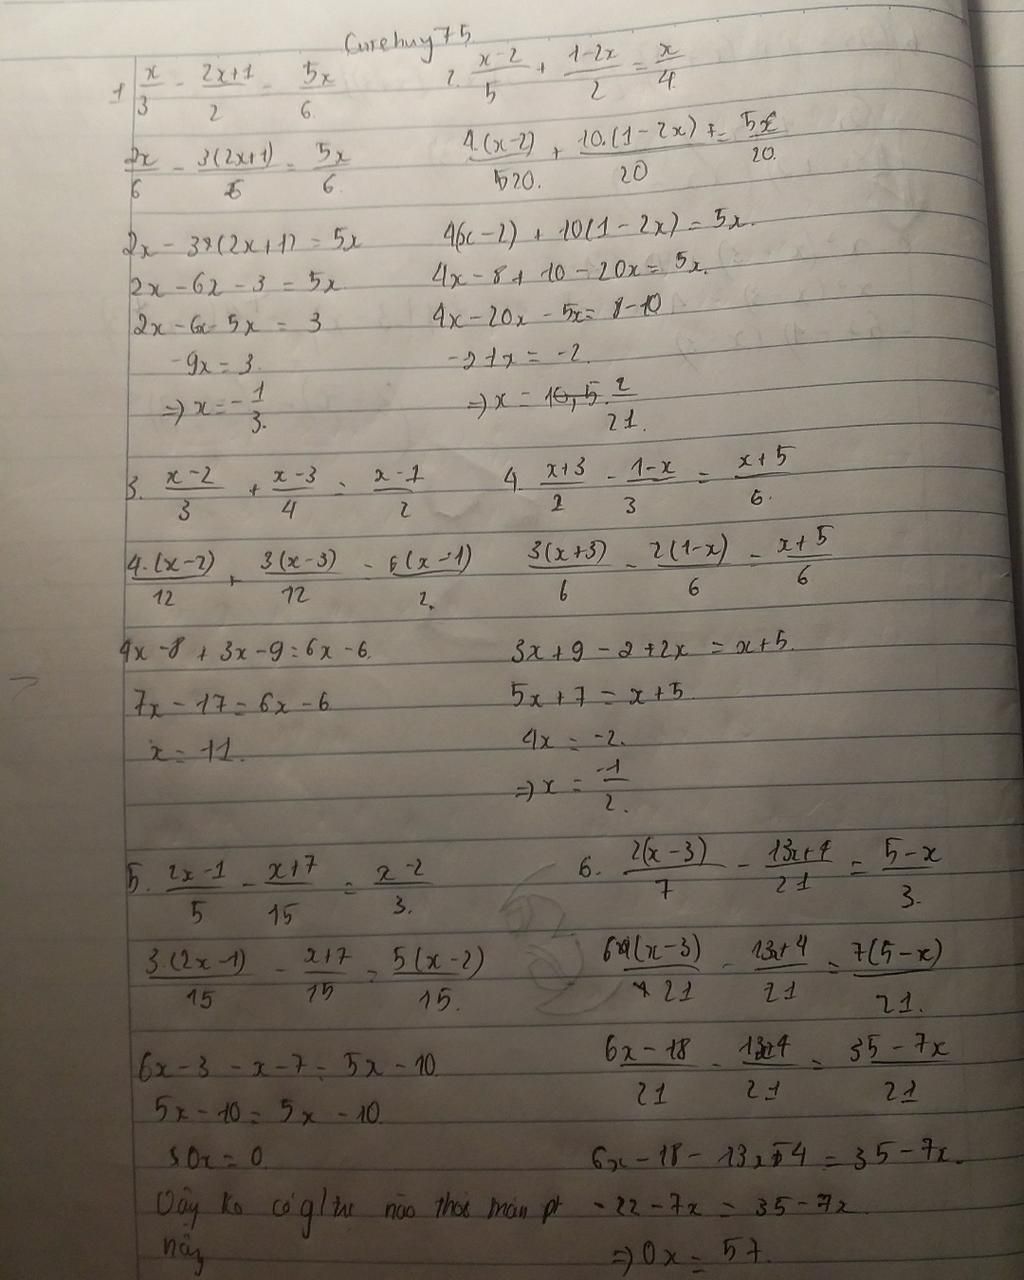 Curehuy75
1 x/3 - (2x+1)/2 = 5x/6.
2x/6 - 3(2x+1)/6 = 5x/6.
2x - 3(2x+1) = 5x
2x - 6x - 3 = 5x
2x - 6x - 5x = 3
-9x = 3.
=> x = -1/3.
2. (x-2)/5 + (1-2x)/2 = x/4.
4.(x-2)/20. + 10.(1-2x)/20 = 5x/20.
4(x-2) + 10(1-2x) = 5x.
4x - 8 + 10 - 20x = 5x.
4x - 20x - 5x = 8 - 10
-21x = -2.
=> x = 10,5. 2/21.
3. (x-2)/3 + (x-3)/4 = (x-1)/2
4.(x-2)/12 + 3(x-3)/12 = 6(x-1)/2.
4x - 8 + 3x - 9 = 6x - 6.
7x - 17 = 6x - 6
x = 11.
4. (x+3)/2 - (1-x)/3 = (x+5)/6.
3(x+3)/6 - 2(1-x)/6 = (x+5)/6
3x + 9 - 2 + 2x = x + 5.
5x + 7 = x + 5
4x = -2.
=> x = -1/2.
5. (2x-1)/5 - (x+7)/15 = (x-2)/3.
3.(2x-1)/15 - (x+7)/15 = 5(x-2)/15.
6x - 3 - x - 7 = 5x - 10
5x - 10 = 5x - 10.
0x = 0.
Vậy ko có g/trị nào thoả mãn pt
này
6. 2(x-3)/7 - (13x+4)/21 = (5-x)/3.
6(x-3)/21 - (13x+4)/21 = 7(5-x)/21.
(6x-18)/21 - (13x+4)/21 = (35-7x)/21
6x - 18 - 13x - 4 = 35 - 7x.
-22 - 7x = 35 - 7x.
=> 0x = 57.